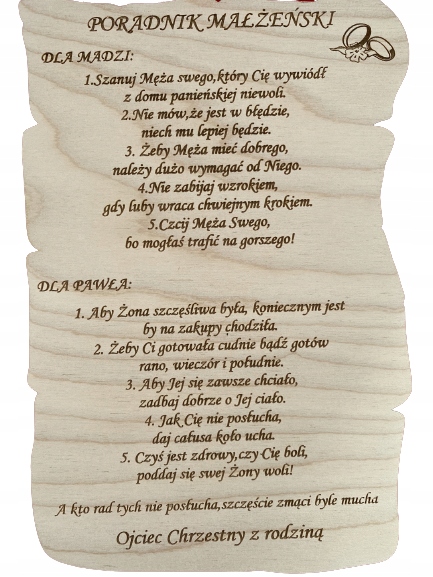 PORADNIK MAŁŻEŃSKI
DLA MADZI:
1.Szanuj Męża swego,który Cię wywiódł
z domu panieńskiej niewoli.
2.Nie mów,że jest w błędzie,
niech mu lepiej będzie.
3. Żeby Męża mieć dobrego,
należy dużo wymagać od Niego.
4.Nie zabijaj wzrokiem,
gdy luby wraca chwiejnym krokiem.
5.Czcij Męża Swego,
bo mogłaś trafić na gorszego!
DLA PAWŁA:
1. Aby Żona szczęśliwa była, koniecznym jest
by na zakupy chodziła.
2. Żeby Ci gotowała cudnie bądź gotów
rano, wieczór i południe.
3. Aby Jej się zawsze chciało,
zadbaj dobrze o Jej ciało.
4. Jak Cię nie posłucha,
daj całusa koło ucha.
5. Czyś jest zdrowy,czy Cię boli,
poddaj się swej Żony woli!
A kto rad tych nie posłucha,szczęście zmąci byle mucha
Ojciec Chrzestny z rodziną